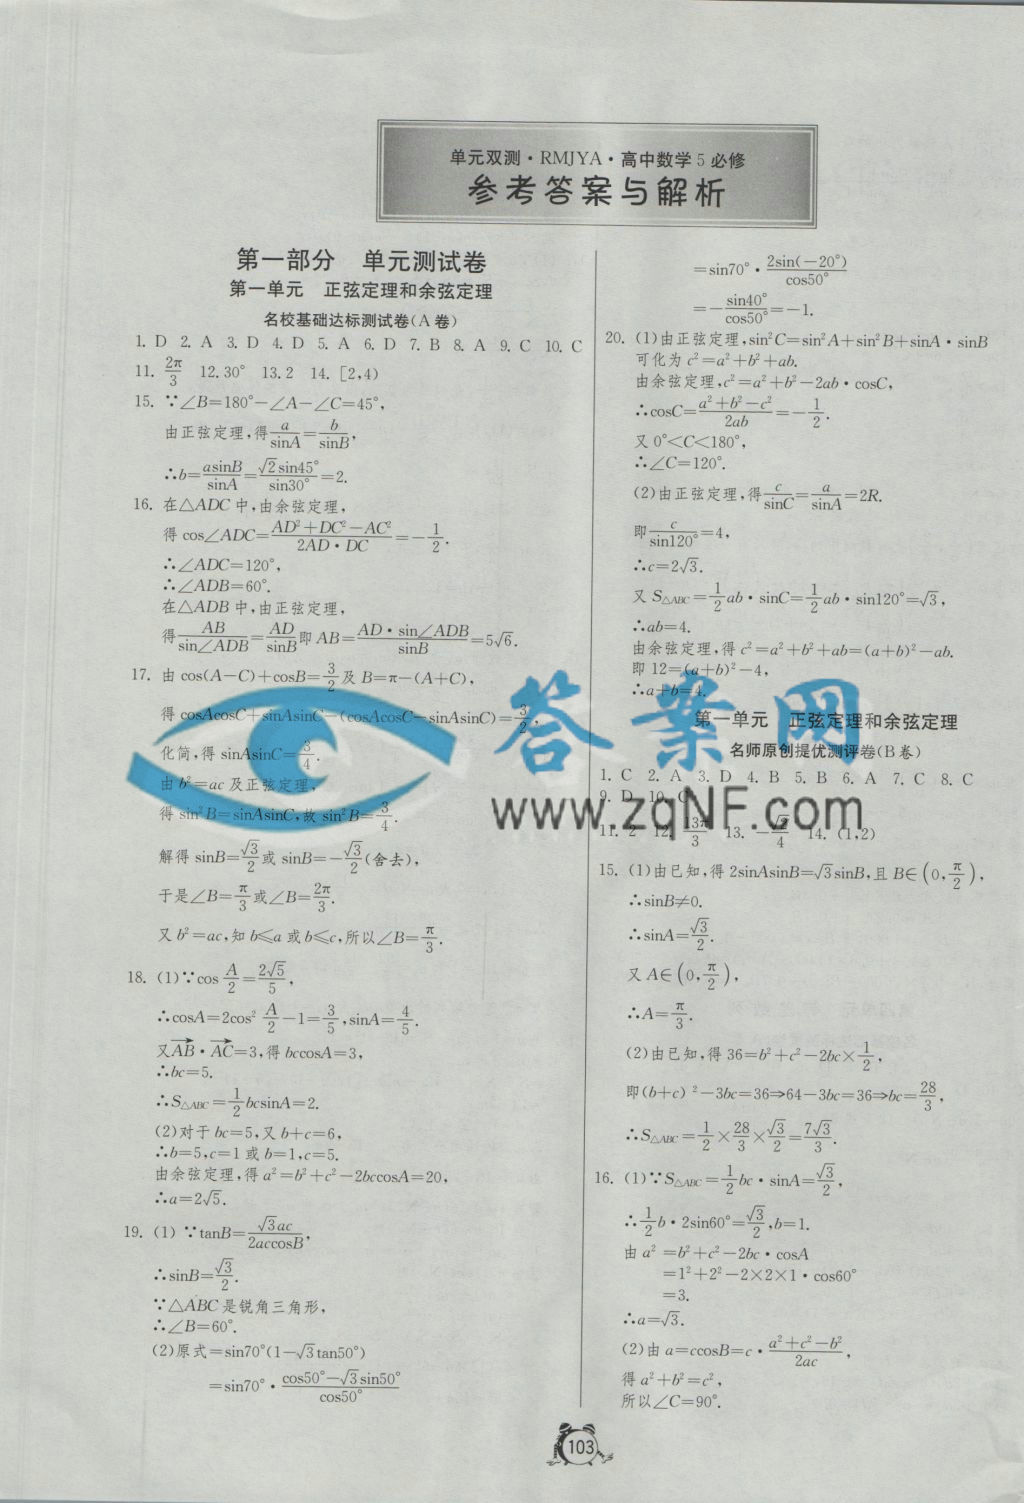 单元双测·RMJYA·高中数学5必修
参考答案与解析
第一部分 单元测试卷
第一单元 正弦定理和余弦定理
名校基础达标测试卷(A卷)
1. D 2. A 3. D 4. D 5. A 6. D 7. B 8. A 9. C 10. C
11. 2π/3 12. 30° 13. 2 14. [2,4)
15. ∵∠B=180°-∠A-∠C=45°,
由正弦定理,得a/sinA=b/sinB,
∴b=asinB/sinA=√2sin45°/sin30°=2.
16. 在△ADC中,由余弦定理,
得cos∠ADC=(AD²+DC²-AC²)/(2AD·DC)=-1/2.
∴∠ADC=120°,
∴∠ADB=60°.
在△ADB中,由正弦定理,
得AB/sin∠ADB=AD/sinB即AB=AD·sin∠ADB/sinB=5√6.
17. 由cos(A-C)+cosB=3/2及B=π-(A+C),
得cosAcosC+sinAsinC-(cosAcosC-sinAsinC)=3/2,
化简,得sinAsinC=3/4.
由b²=ac及正弦定理,
得sin²B=sinAsinC,故sin²B=3/4.
解得sinB=√3/2或sinB=-√3/2(舍去),
于是∠B=π/3或∠B=2π/3.
又b²=ac,知b≤a或b≤c,所以∠B=π/3.
18. (1)∵cos A/2=2√5/5,
∴cosA=2cos² A/2-1=3/5,sinA=4/5.
又AB·AC=3,得bccosA=3,
∴bc=5.
∴S△ABC=1/2bcsinA=2.
(2)对于bc=5,又b+c=6,
∴b=5,c=1或b=1,c=5.
由余弦定理,得a²=b²+c²-2bccosA=20,
∴a=2√5.
19. (1)∵tanB=√3ac/2accosB,
∴sinB=√3/2.
∵△ABC是锐角三角形,
∴∠B=60°.
(2)原式=sin70°(1-√3tan50°)
=sin70°·(cos50°-√3sin50°)/cos50°
=sin70°·2sin(-20°)/cos50°
=-sin40°/cos50°=-1.
20. (1)由正弦定理,sin²C=sin²A+sin²B+sinA·sinB
可化为c²=a²+b²+ab.
由余弦定理,c²=a²+b²-2ab·cosC,
∴cosC=(a²+b²-c²)/2ab=-1/2.
又0°<C<180°,
∴∠C=120°.
(2)由正弦定理,得c/sinC=a/sinA=2R.
即c/sin120°=4,
∴c=2√3.
又S△ABC=1/2ab·sinC=1/2ab·sin120°=√3,
∴ab=4.
由余弦定理,得c²=a²+b²+ab=(a+b)²-ab.
即12=(a+b)²-4,
∴a+b=4.
第一单元 正弦定理和余弦定理
名师原创提优测评卷(B卷)
1. C 2. A 3. D 4. B 5. B 6. A 7. C 8. C
9. D 10. C
11. 2 12. 13π/3 13. -√2/4 14. (1,2)
15. (1)由已知,得2sinAsinB=√3sinB,且B∈(0,π/2),
∴sinB≠0.
∴sinA=√3/2.
又A∈(0,π/2),
∴A=π/3.
(2)由已知,得36=b²+c²-2bc×1/2,
即(b+c)²-3bc=36⇒64-3bc=36⇒bc=28/3,
∴S△ABC=1/2×28/3×√3/2=7√3/3.
16. (1)∵S△ABC=1/2bc·sinA=√3/2,
∴1/2b·2sin60°=√3/2,b=1.
由a²=b²+c²-2bc·cosA
=1²+2²-2×2×1·cos60°
=3.
∴a=√3.
(2)由a=ccosB=c·(a²+c²-b²)/2ac,
得a²+b²=c²,
所以∠C=90°.
答案网
www.zqNF.com
103